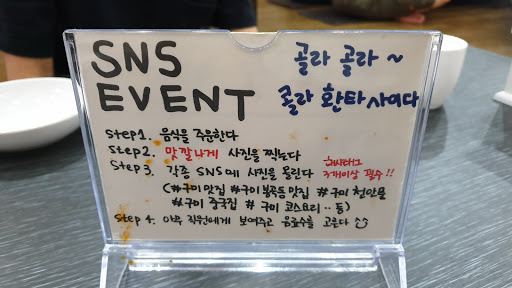 SNS
EVENT
골라 골라 ~
콜라 환타 사이다
Step 1. 음식을 주문한다
Step 2. 맛깔나게 사진을 찍는다
Step 3. 각종 SNS에 사진을 올린다
해시태그
3개이상 필수!!
(#구미 맛집 #구미 봉곡동 맛집 #구미 천안문
#구미 중국집 #구미 코스요리 .. 등)
Step 4. 아무 직원에게 보여주고 음료수를 고른다